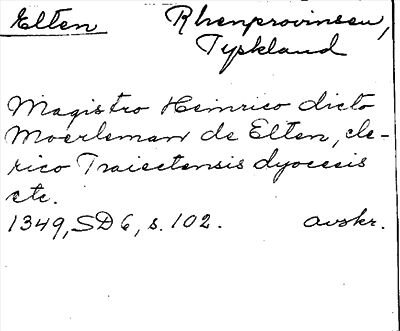 Elten Rhenprovinsen,
Tyskland
Magistro Heinrico dicto
Moerleman de Elten, cle-
rico Traiectensis dyocesis
etc.
1349, SD 6, s. 102. avskr.